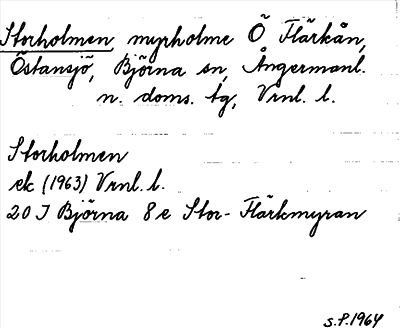 Storholmen myrholme Ö Flärkån,
Östansjö, Björna sn, Ångermanl.
n. doms. tg, Vrnl. l.
Storholmen
ek (1963) Vrnl. l.
20 J Björna 8 e Stor-Flärkmyran
S.P. 1964